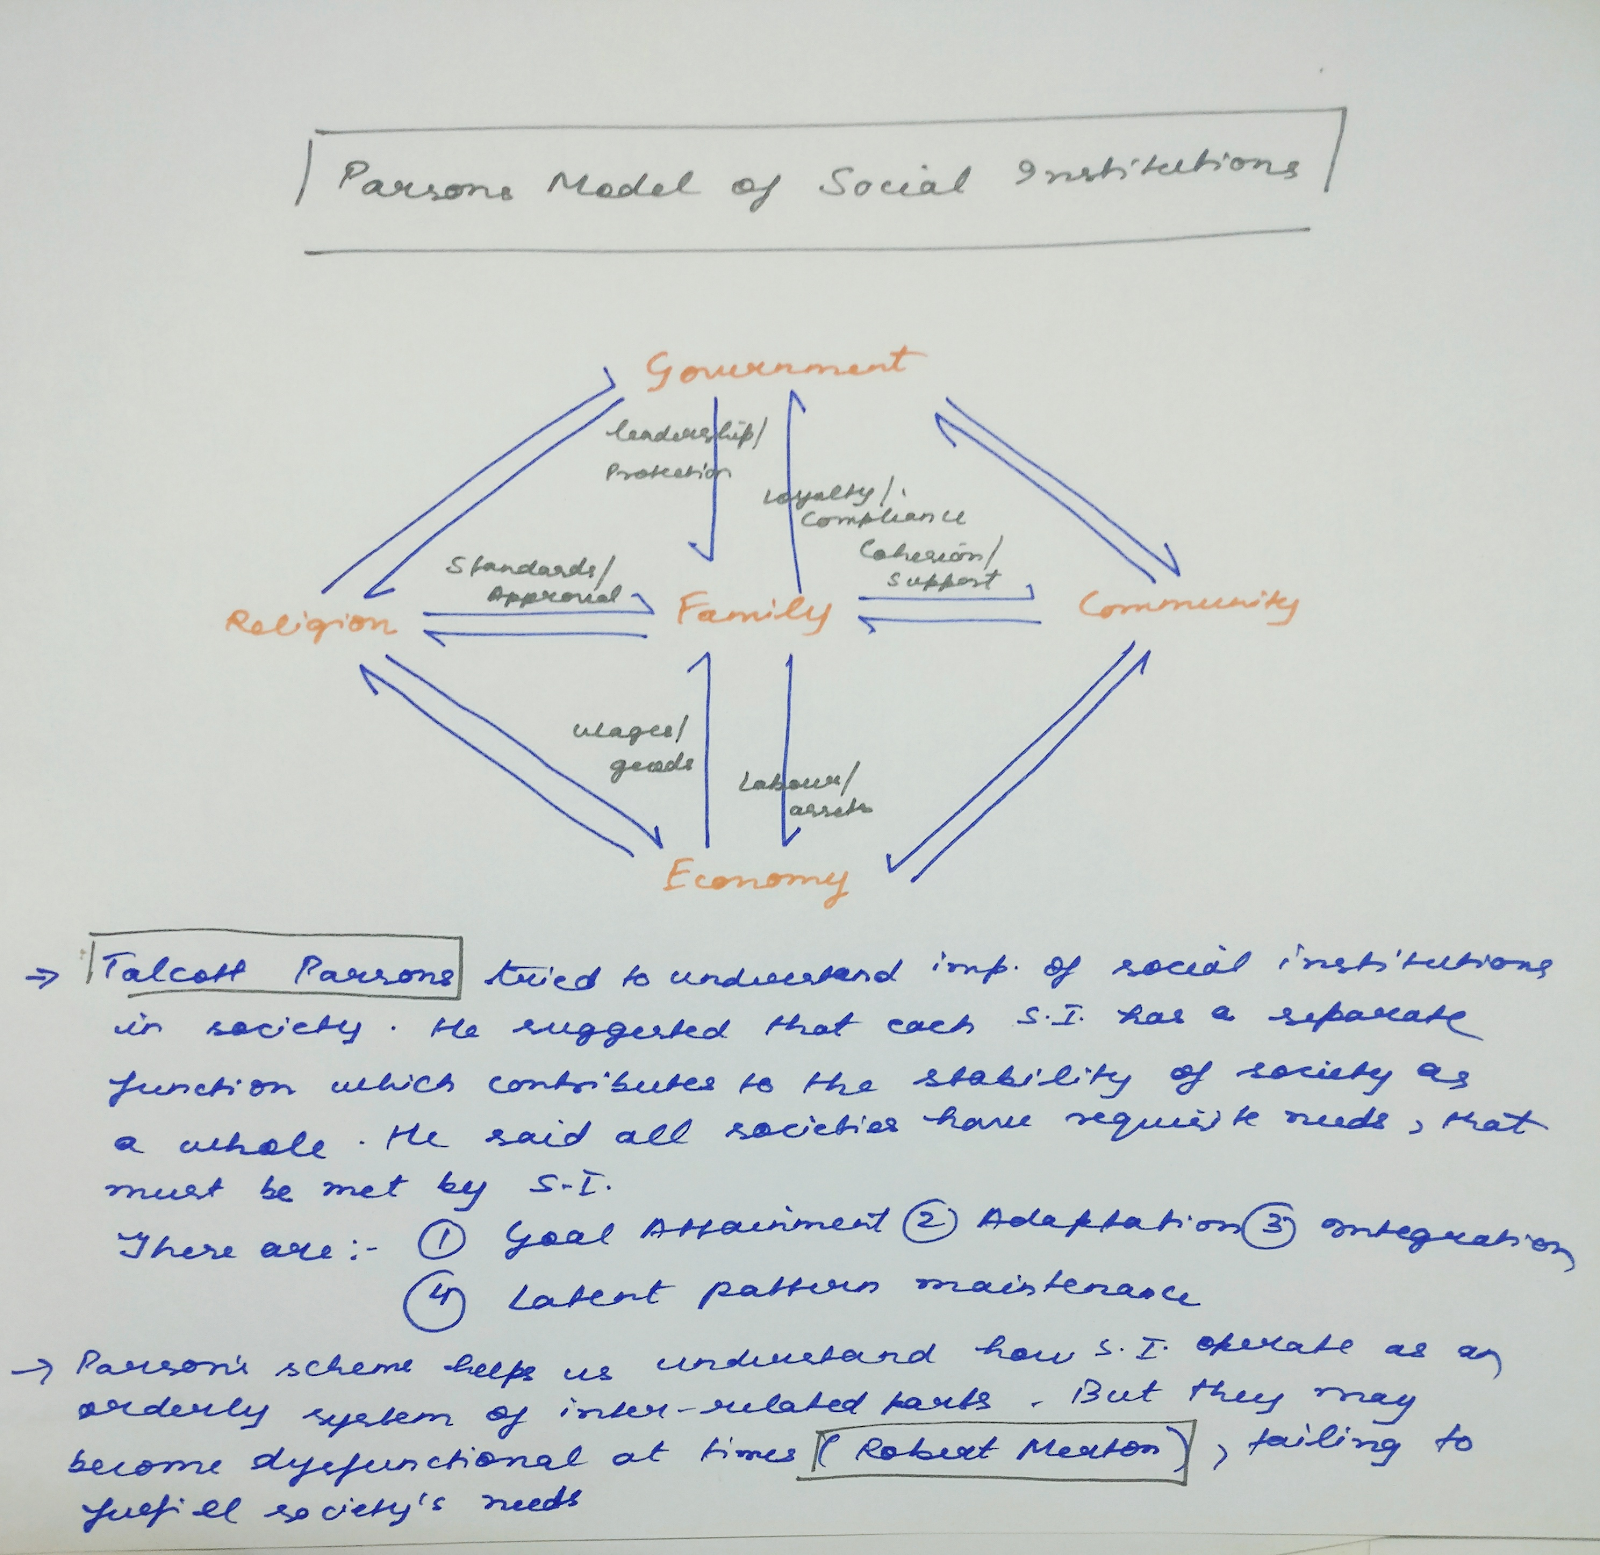 Parsons Model of Social Institutions
Government
leadership/
Protection
Loyalty/
Compliance
Standards/
Approval
Cohesion/
Support
Religion
Family
Community
wages/
goods
Labour/
assets
Economy
→ Talcott Parsons tried to understand imp. of social institutions
in society. He suggested that each S.I. has a separate
function which contributes to the stability of society as
a whole. He said all societies have requisite needs, that
must be met by S.I.
There are:- ① Goal Attainment ② Adaptation ③ Integration,
④ Latent pattern maintenance
→ Parson's scheme helps us understand how S.I. operate as an
orderly system of inter-related parts. But they may
become dysfunctional at times (Robert Merton), failing to
fulfill society's needs